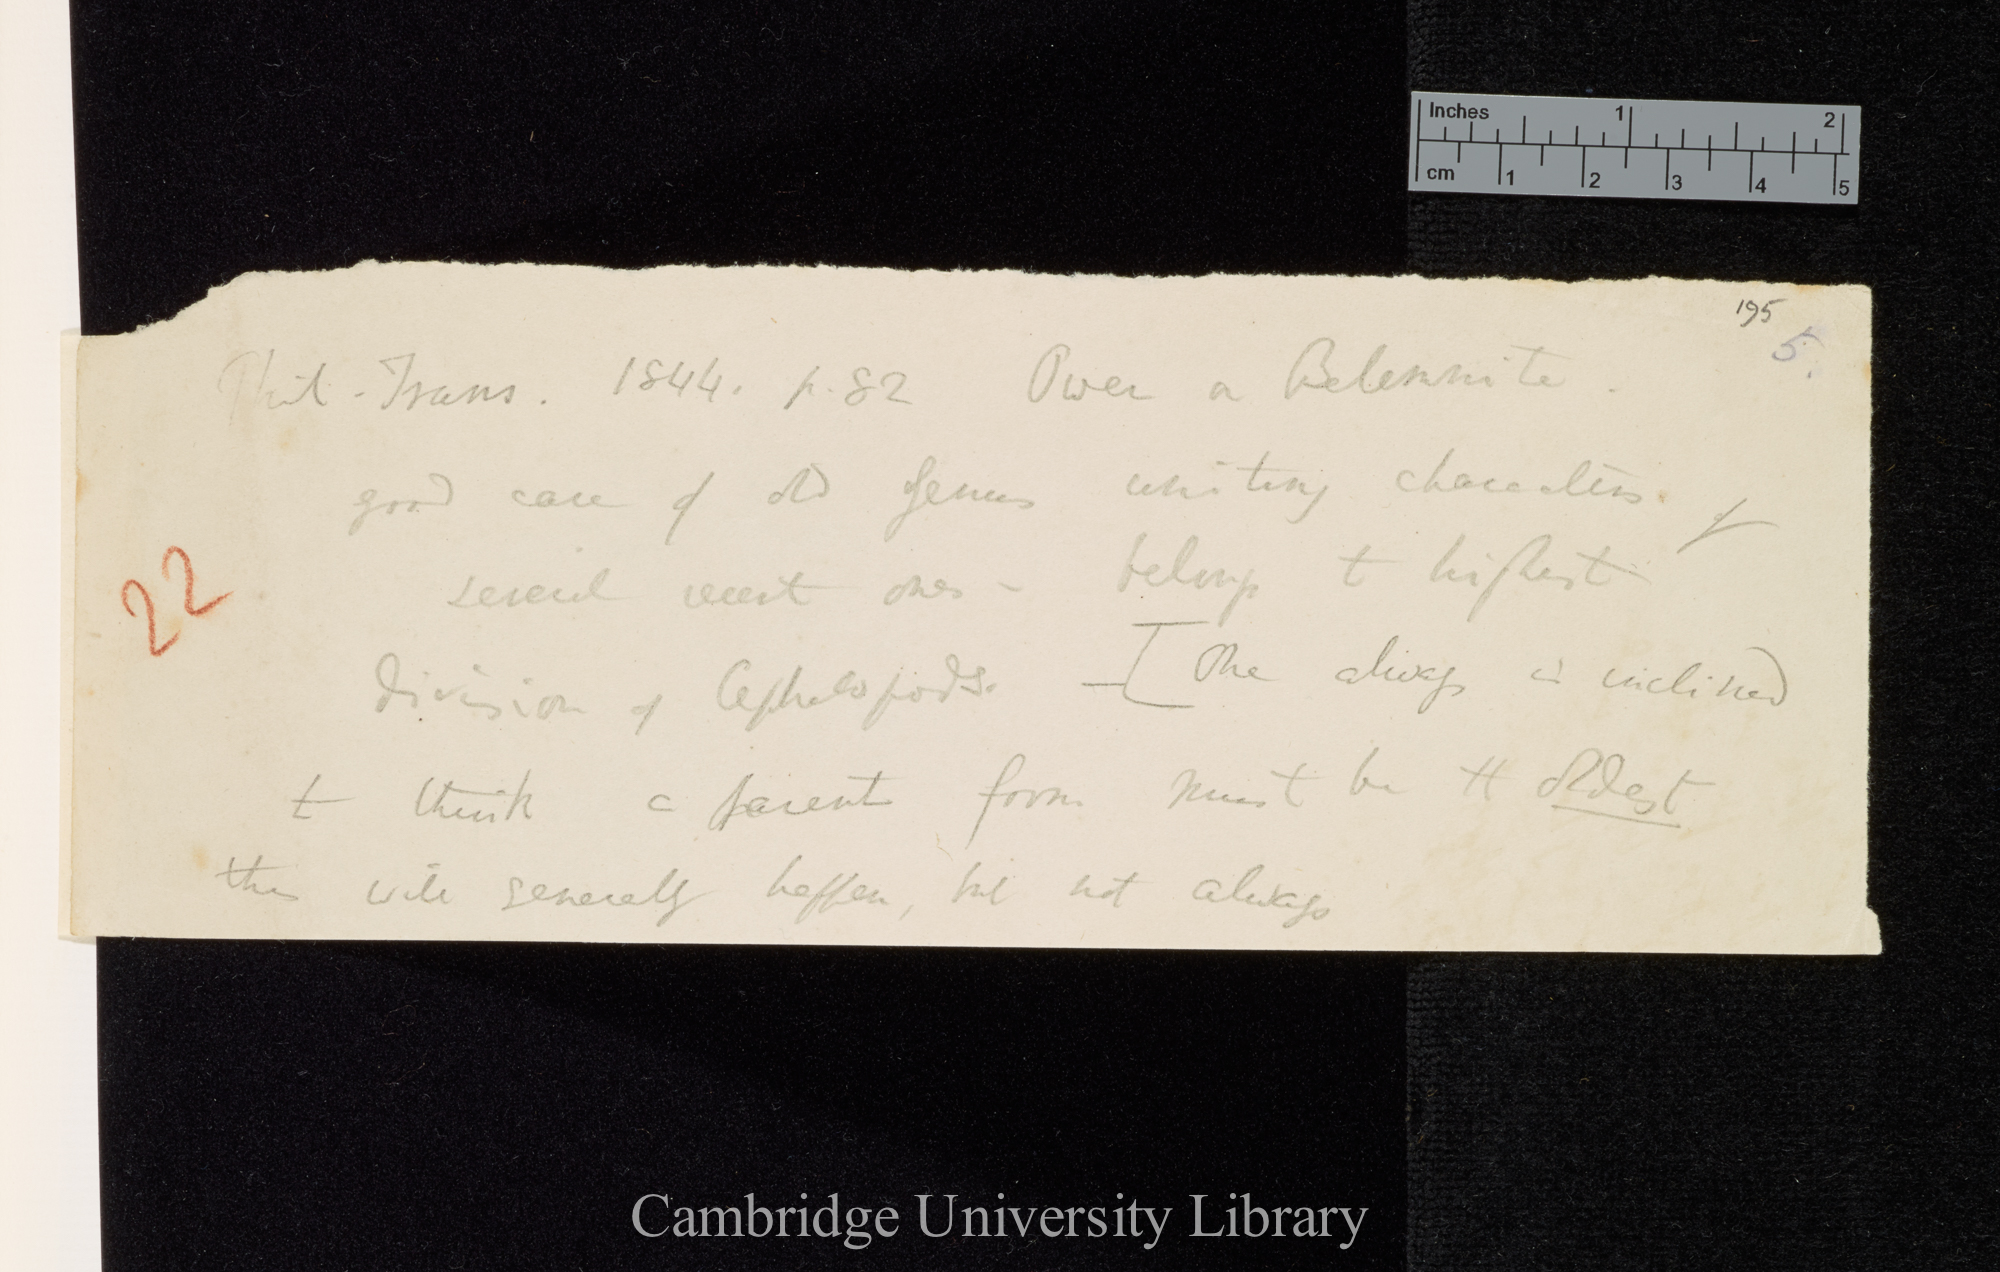 Inches 1 2
cm 1 2 3 4 5
195
5.
Phil-Trans. 1844. p.82 Owen on Belemnite.
good case of old genus uniting characters of
several recent ones - belongs to highest
22
division of Cephalopods. — [One always is inclined
to think a parent form must be the oldest
this will generally happen, but not always
Cambridge University Library